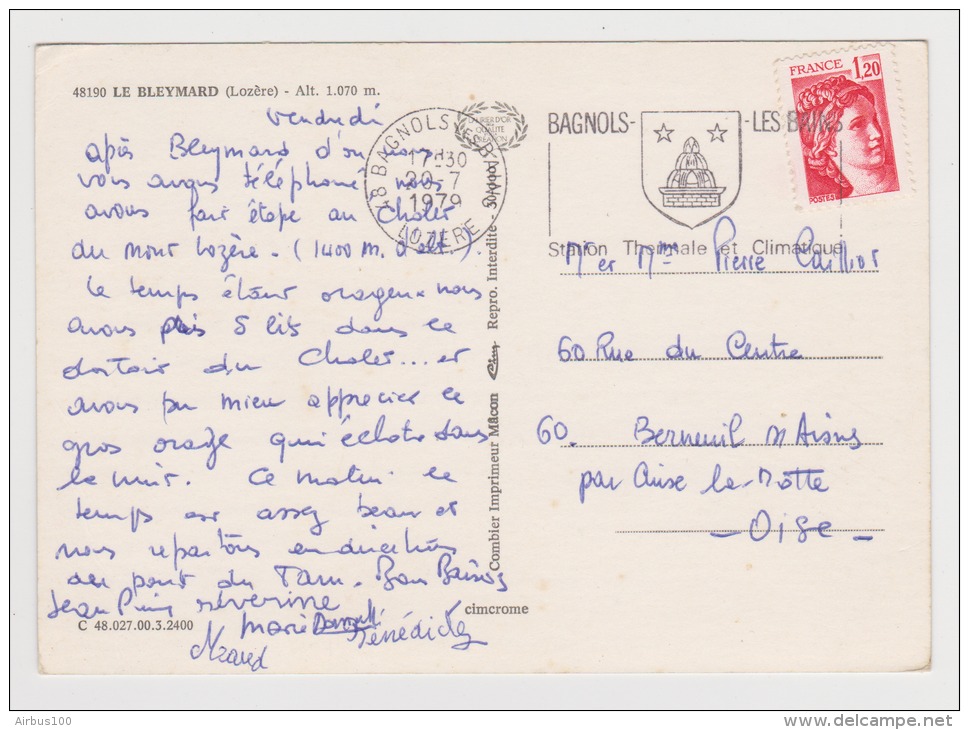 48190 LE BLEYMARD (Lozère) - Alt. 1.070 m.
vendredi
après Bleymard d'où nous
vous avons téléphoné nous
avons fait étape au Chalet
du Mont Lozère. (1400 m. d'alt.).
Le temps étant orageux nous
avons pris 5 lits dans le
dortoir du Chalet... et
avons pu mieux apprécier le
gros orage qui éclata dans
la nuit. Ce matin le
temps est assez beau et
nous repartons en direction
du pont du Tarn. Bons Baisers
Jean Pierre Séverine
Marie Bénédicte
C 48.027.00.3.2400
cimcrome
Combier Imprimeur Mâcon Repro. Interdite -
48 BAGNOLS LES BAINS
17H30
20-7
1979
LOZERE
BAGNOLS- -LES BAINS
Station Thermale et Climatique
FRANCE 1,20
POSTES
Mr et Mme Pierre Cailliot
60 Rue du Centre
60. Berneuil s/ Aisne
par Cuise la Motte
- Oise -
Airbus100
www.delcampe.net